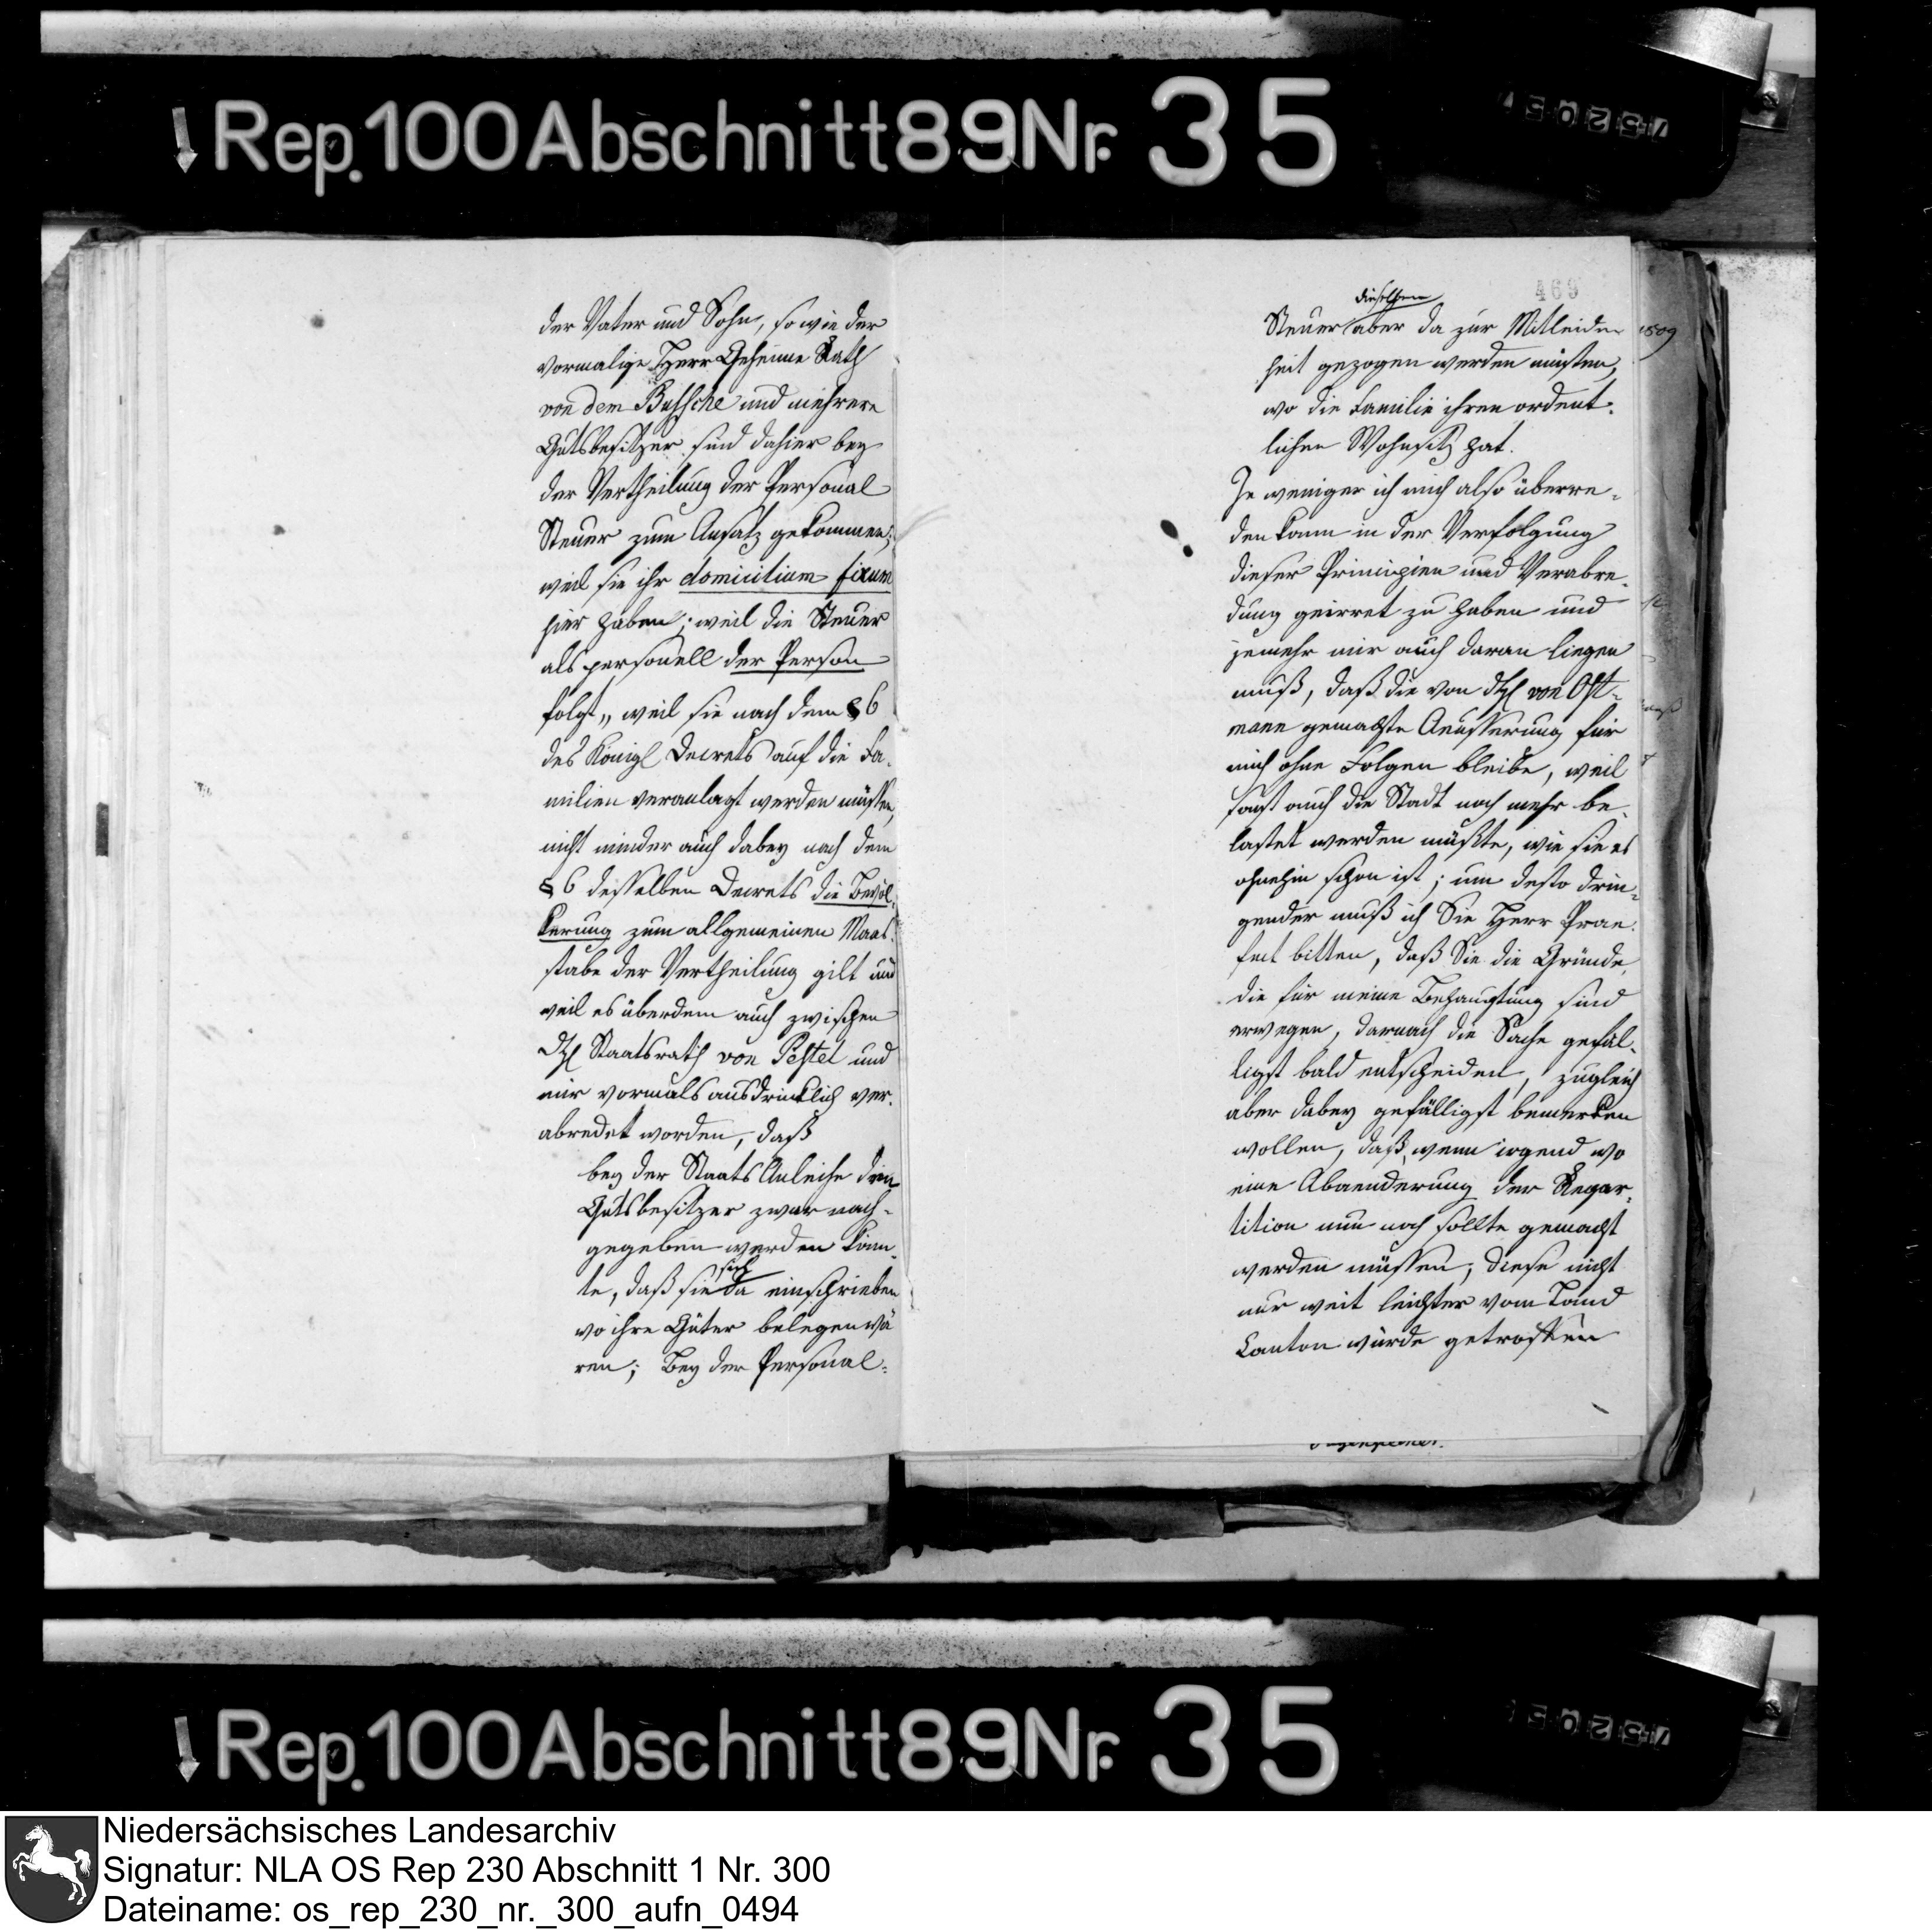 Rep. 100 Abschnitt 89 Nr. 35
der Vater und Sohn, so wie der
vormalige Herr Geheime Rath
von dem Bussche und mehrere
Gutsbesitzer sind dahier bey
der Vertheilung der Personal
Steuer zum Ansatz gekommen;
weil sie ihr domicilium fixum
hier haben; weil die Steuer
als personell der Person
folgt, weil sie nach dem § 6
des Königl Decrets auf die Fa-
milien veranlagt werden müssen,
nicht minder auch dabey nach dem
§ 6 desselben Decrets die Bevöl-
kerung zum allgemeinen Maas-
stabe der Vertheilung gilt und
weil es überdem auch zwischen
Staatsrath von Pestel und
mir vormals ausdrücklich ver-
abredet worden, daß
bey der Staats Anleihe den
Gutsbesitzer zwar nach-
gegeben werden kön-
te, daß sie sich da einschrieben
wo ihre Güter belegen wä
ren; Bey der Personal-
469
dieselben
Steuer aber da zur Mitleiden
heit gezogen werden müsten,
wo die Familie ihren ordent-
lichen Wohnsitz hat.
Je weniger ich mich also überre-
den kann in der Verfolgung
dieser Principien und Verabre-
dung geirret zu haben und
jemehr mir auch daran liegen
muß, daß die von von Ost-
mann gemachte Aeusserung für
mich ohne Folgen bleibe, weil
sonst auch die Stadt noch mehr be-
lastet werden müßte, wie sie es
ohnehin schon ist; um desto drin-
gender muß ich Sie Herr Prae-
fect bitten, daß Sie die Gründe,
die für meine Behauptung sind
erwegen, darnach die Sache gefäl-
ligst bald entscheiden, zugleich
aber dabey gefälligst bemerken
wollen, daß, wenn irgend wo
eine Abaenderung der Repar-
tition nun noch sollte gemacht
werden müssen, diese nicht
nur weit leichter vom Land
Canton würde getroffen
1809
Rep. 100 Abschnitt 89 Nr. 35
Niedersächsisches Landesarchiv
Signatur: NLA OS Rep 230 Abschnitt 1 Nr. 300
Dateiname: os_rep_230_nr._300_aufn_0494